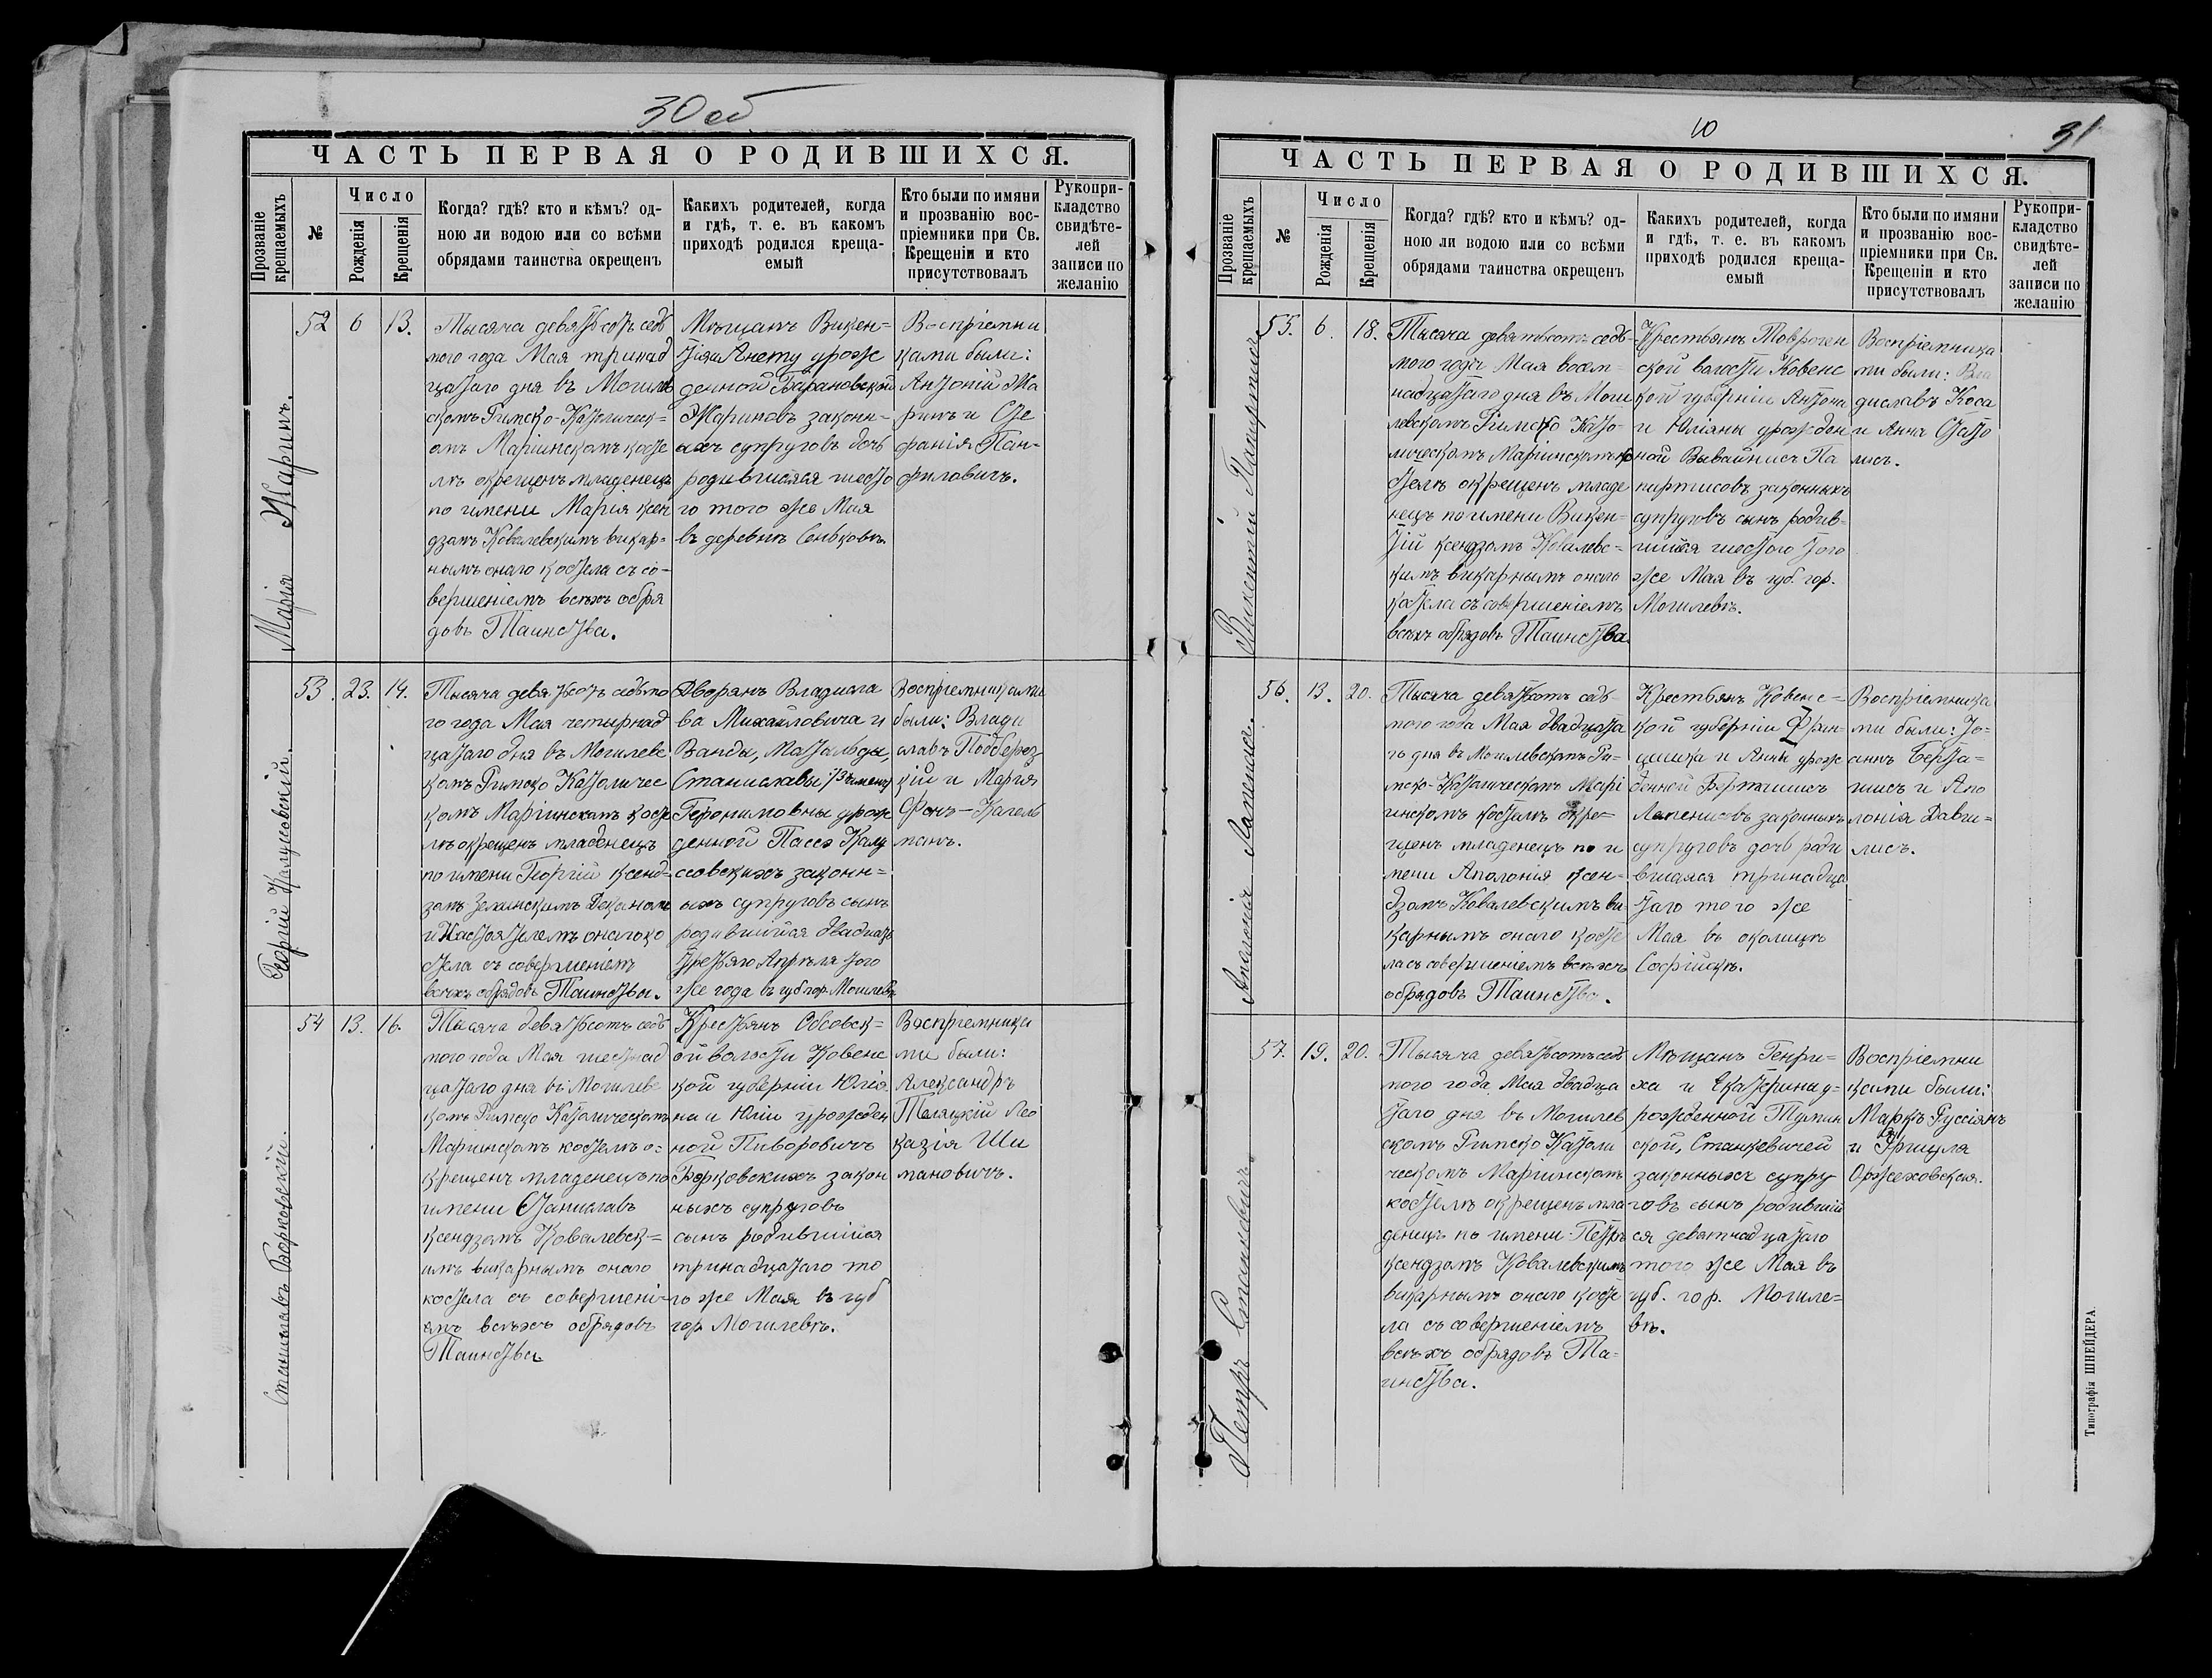 30 об
ЧАСТЬ ПЕРВАЯ О РОДИВШИХСЯ.
Прозваніе крещаемыхъ
№
Число
Рожденія
Крещенія
Когда? гдѣ? кто и кѣмъ? од-
ною ли водою или со всѣми
обрядами таинства окрещенъ
Какихъ родителей, когда
и гдѣ, т. е. въ какомъ
приходѣ родился креща-
емый
Кто были по имяни
и прозванію вос-
пріемники при Св.
Крещеніи и кто
присутствовалъ
Рукопри-
кладство
свидѣте-
лей
записи по
желанію
Марія Жаринъ.
52
6
13.
Тысяча девятьсотъ седь
мого года Мая тринад
цатаго дня въ Могилев
скомъ Римско-Католическ-
омъ Маріинскомъ косте
лѣ окрещенъ младенецъ
по имени Марія ксен
дзомъ Ковалевскимъ викар-
нымъ онаго костела съ со-
вершеніемъ всѣхъ обря
довъ Таинства.
Мѣщанъ Викен-
тія и Анету урож
денной Барановской
Жариновъ законн-
ыхъ супруговъ дочь
родившаяся шесто
го того же Мая
въ деревнѣ Сеньковѣ
Воспріемни
ками были:
Антоній Жа
ринъ и Сте
фанія Пан-
филовичъ.
Георгій Калусовскій.
53.
23.
14.
Тысяча девятьсотъ седьмо
го года Мая четырнад
цатаго дня въ Могилевс
комъ Римско Католичес
комъ Маріинскомъ косте
лѣ окрещенъ младенецъ
по имени Георгій ксенд-
зомъ Зелинскимъ Деканомъ
и Настоятелемъ онаго ко
стела съ совершеніемъ
всѣхъ обрядовъ Таинства.
Дворянъ Владисла
ва Михайловича и
Ванды, Матильды,
Станиславы /3 именъ/
Геронимовны урож
денной Пассэ Калу
совскихъ законн-
ыхъ супруговъ сынъ
родившійся двадцать
третяго Апрѣля того
же года въ губ гор. Могилевѣ
Воспріемниками
были: Влади
славъ Подберез
кій и Марія
Фонъ-Кагель
манъ.
Станиславъ Борковскій.
54
13.
16.
Тысяча девятьсотъ седь
мого года Мая шестнад
цатаго дня въ Могилевс
комъ Римско Католическомъ
Маріинскомъ костелѣ о-
крещенъ младенецъ по
имени Станиславъ
ксендзомъ Ковалевск-
имъ викарнымъ онаго
костела съ совершені-
емъ всѣхъ обрядовъ
Таинства
Крестьянъ Обсовск-
ой волости Ковенс
кой губерніи Юліа
на и Юліи урожден
ной Пиворовичъ
Борковскихъ закон
ныхъ супруговъ
сынъ родившійся
тринадцатаго то
го же Мая въ губ
гор Могилевѣ.
Воспріемника
ми были:
Александръ
Толяцкій Лео
кадія Ши
мановичъ.
10
31
ЧАСТЬ ПЕРВАЯ О РОДИВШИХСЯ.
Прозваніе крещаемыхъ
№
Число
Рожденія
Крещенія
Когда? гдѣ? кто и кѣмъ? од-
ною ли водою или со всѣми
обрядами таинства окрещенъ
Какихъ родителей, когда
и гдѣ, т. е. въ какомъ
приходѣ родился креща-
емый
Кто были по имяни
и прозванію вос-
пріемники при Св.
Крещеніи и кто
присутствовалъ
Рукопри-
кладство
свидѣте-
лей
записи по
желанію
Викентій
55.
6.
18.
Тысяча девятьсотъ седь-
мого года Мая восем-
надцатаго дня въ Моги
левскомъ Римско Като-
лическомъ Маріинскомъ ко
стелѣ окрещенъ младе
нецъ по имени Викен-
тій ксендзомъ Ковалевс-
кимъ викарнымъ онаго
костела съ совершеніемъ
всѣхъ обрядовъ Таинства
Крестьянъ Товроген
ской волости Ковенс
кой губерніи Антона
и Юліяны урожден
ной Вывайнисъ Па
пиртисовъ законныхъ
супруговъ сынъ родив-
шійся шестого того
же Мая въ губ. гор.
Могилевѣ.
Воспріемника
ми были: Вла
диславъ Коса
и Анна Стато
лисъ.
Аполонія Лапенисъ.
56.
13.
20.
Тысяча девятьсотъ седь-
мого года Мая двадцата
го дня въ Могилевскомъ Ри-
мско-Католическомъ Марі
инскомъ костелѣ окре-
щенъ младенецъ по и
мени Аполонія ксен-
дзомъ Ковалевскимъ ви-
карнымъ онаго косте
ла съ совершеніемъ всѣхъ
обрядовъ Таинства.
Крестьянъ Ковенс-
кой губерніи Фран-
цишка и Анны урож
денной Берташисъ
Лапенисовъ законныхъ
супруговъ дочь роди
вшаяся тринадца
таго того же
Мая въ околицѣ
Софійкѣ.
Воспріемника
ми были: Іо-
аннъ Берта-
шисъ и Апо
лонія Давги-
лисъ.
Петръ Станкевичъ
57.
19.
20.
Тысяча девятьсотъ седь
мого года Мая двадца
таго дня въ Могилев
скомъ Римско Католи
ческомъ Маріинскомъ
костелѣ окрещенъ мла-
денецъ по имени Петръ
ксендзомъ Ковалевскимъ
викарнымъ онаго косте
ла съ совершеніемъ
всѣхъ обрядовъ Та-
инства.
Мѣщанъ Генри-
ха и Екатерины у-
рожденной Тумин
ской, Станкевичей
законныхъ супру
говъ сынъ родившій
ся девятнадцатаго
того же Мая въ
губ. гор. Могиле-
вѣ.
Воспріемни
ками были:
Маркъ Руссіянъ
и
Оржеховская.
Типографія ШНЕЙДЕРА.